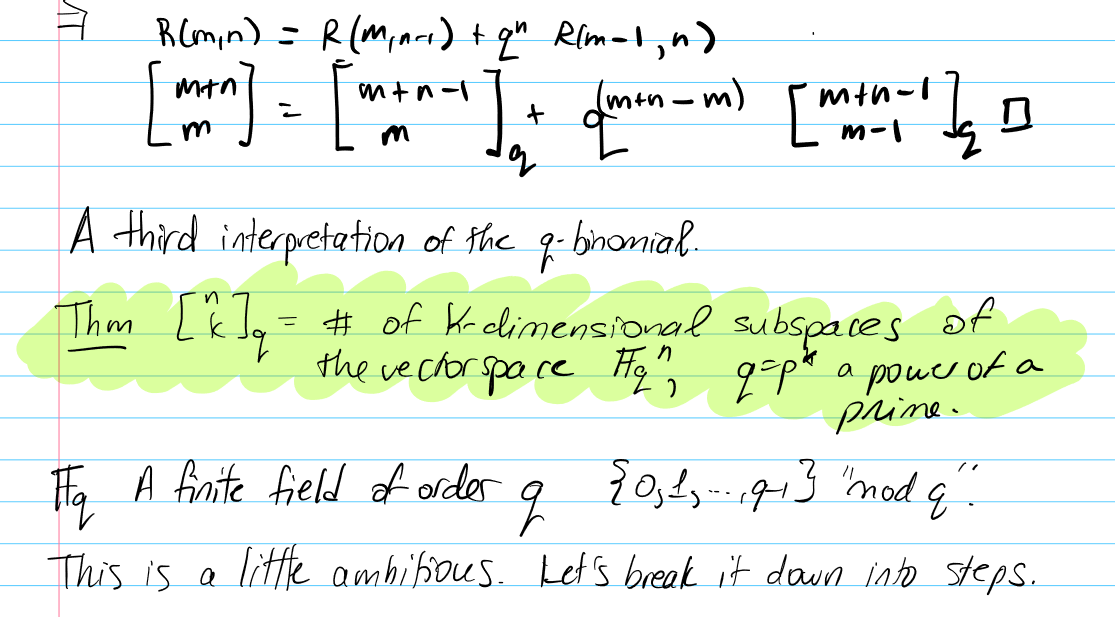 ⇒ R(m,n) = R(m,n-1) + qⁿ R(m-1,n)
[m+n m] = [m+n-1 m]_q + q^(m+n-m) [m+n-1 m-1]_q □
A third interpretation of the q-binomial.
Thm [n k]_q = # of k-dimensional subspaces of
the vectorspace 𝔽_qⁿ, q=p^k a power of a
prime.
𝔽_q A finite field of order q {0,1,...,q-1} "mod q".
This is a little ambitious. Let's break it down into steps.